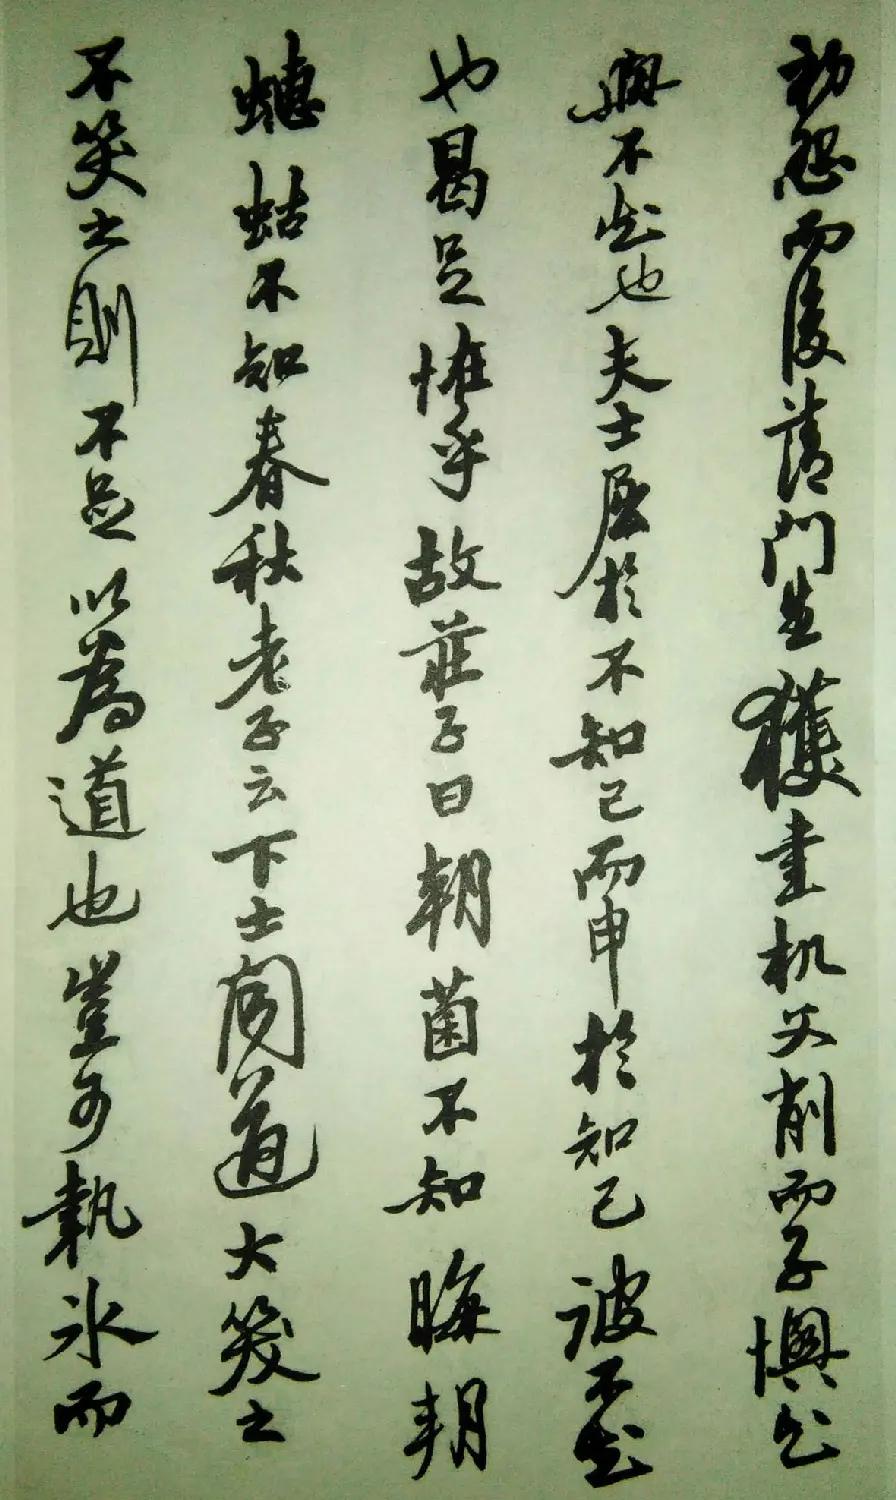 初怨而後請門生獲書机父削而子懊知
與不知也夫士屈於不知己而申於知己彼不知
也曷足恠乎故莊子曰朝菌不知晦朔
蟪蛄不知春秋老子云下士聞道大笑之
不笑之則不足以為道也豈可執冰而